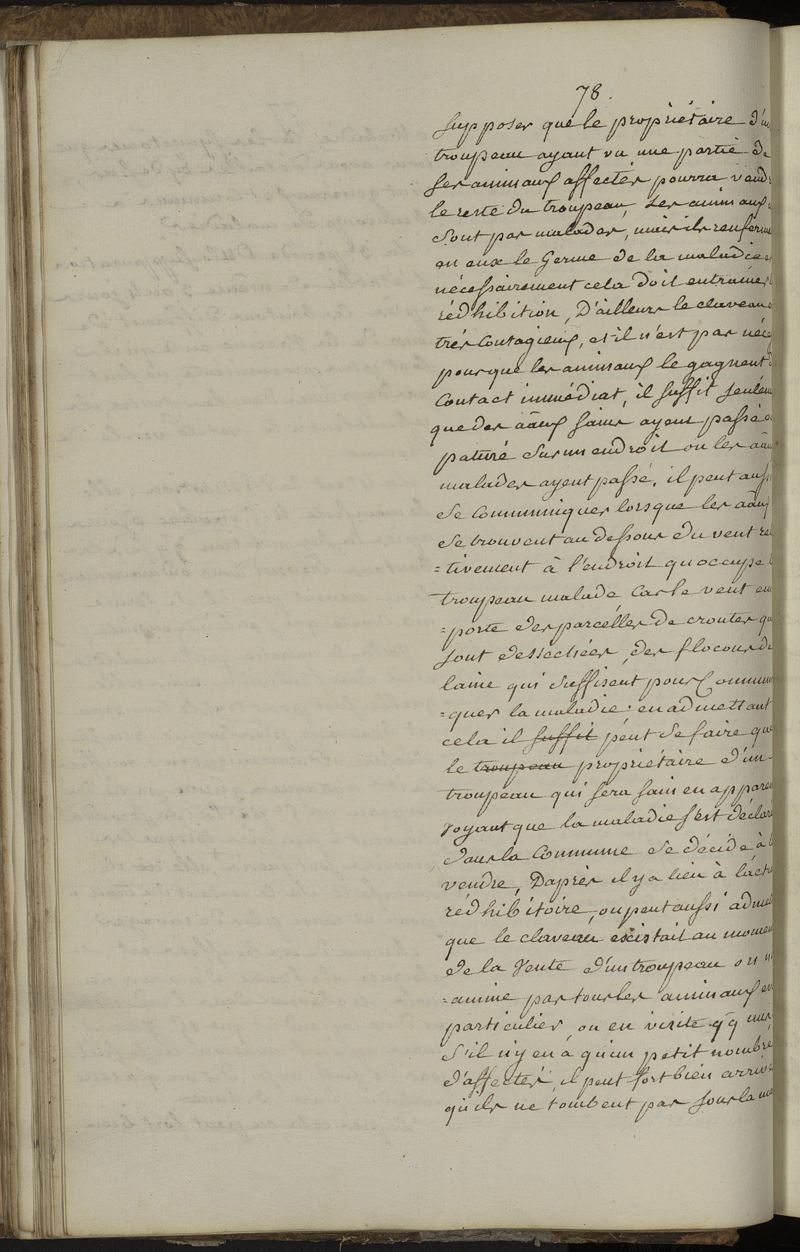 78.
supposer que le propriétaire d'un
troupeau ayant vu une partie de
ses animaux affectés pourra vend
le reste du troupeau, les animaux
sont pas malades, mais ils renferme
en eux le Germe de la maladie et
nécessairement cela doit entrainer
rédhibition, D'ailleurs le claveau
très Contagieux, et il n'est pas néce
pour que les animaux le gagnent
Contact immédiat, il suffit seulem
que des aâux sains ayent passé o
paturé sur un endroit ou les aâu
malades ayent passé, il peut aussi
se Communiquer lorsque les aâux
se trouvent au dessous du vent re
=tivement à l'endroit qu'occupe
troupeau malade Car le vent em
=porte des parcélles de croutes qu
sont desséchées, des flocons de
laine qui suffisent pour Commun
=quer la maladie. en admettant
cela il suffit péut se faire que
le troupeau propriétaire d'un
troupeau qui sera sain en apparen
voyant que la maladie s'est déclaré
dans la Commune se décide à
vendre, D'après il y a lieu à l'acti
rédhibitoire, on peut aussi admet
que le claveau existait au momen
de la Vente d'un troupeau on n
=amine pas tous les animaux en
particulier, on en visite qq uns
s'il n'y en a qu'un petit nombre
d'affectés, il peut fort bien arrive
qu'ils ne tombent pas sous la ma